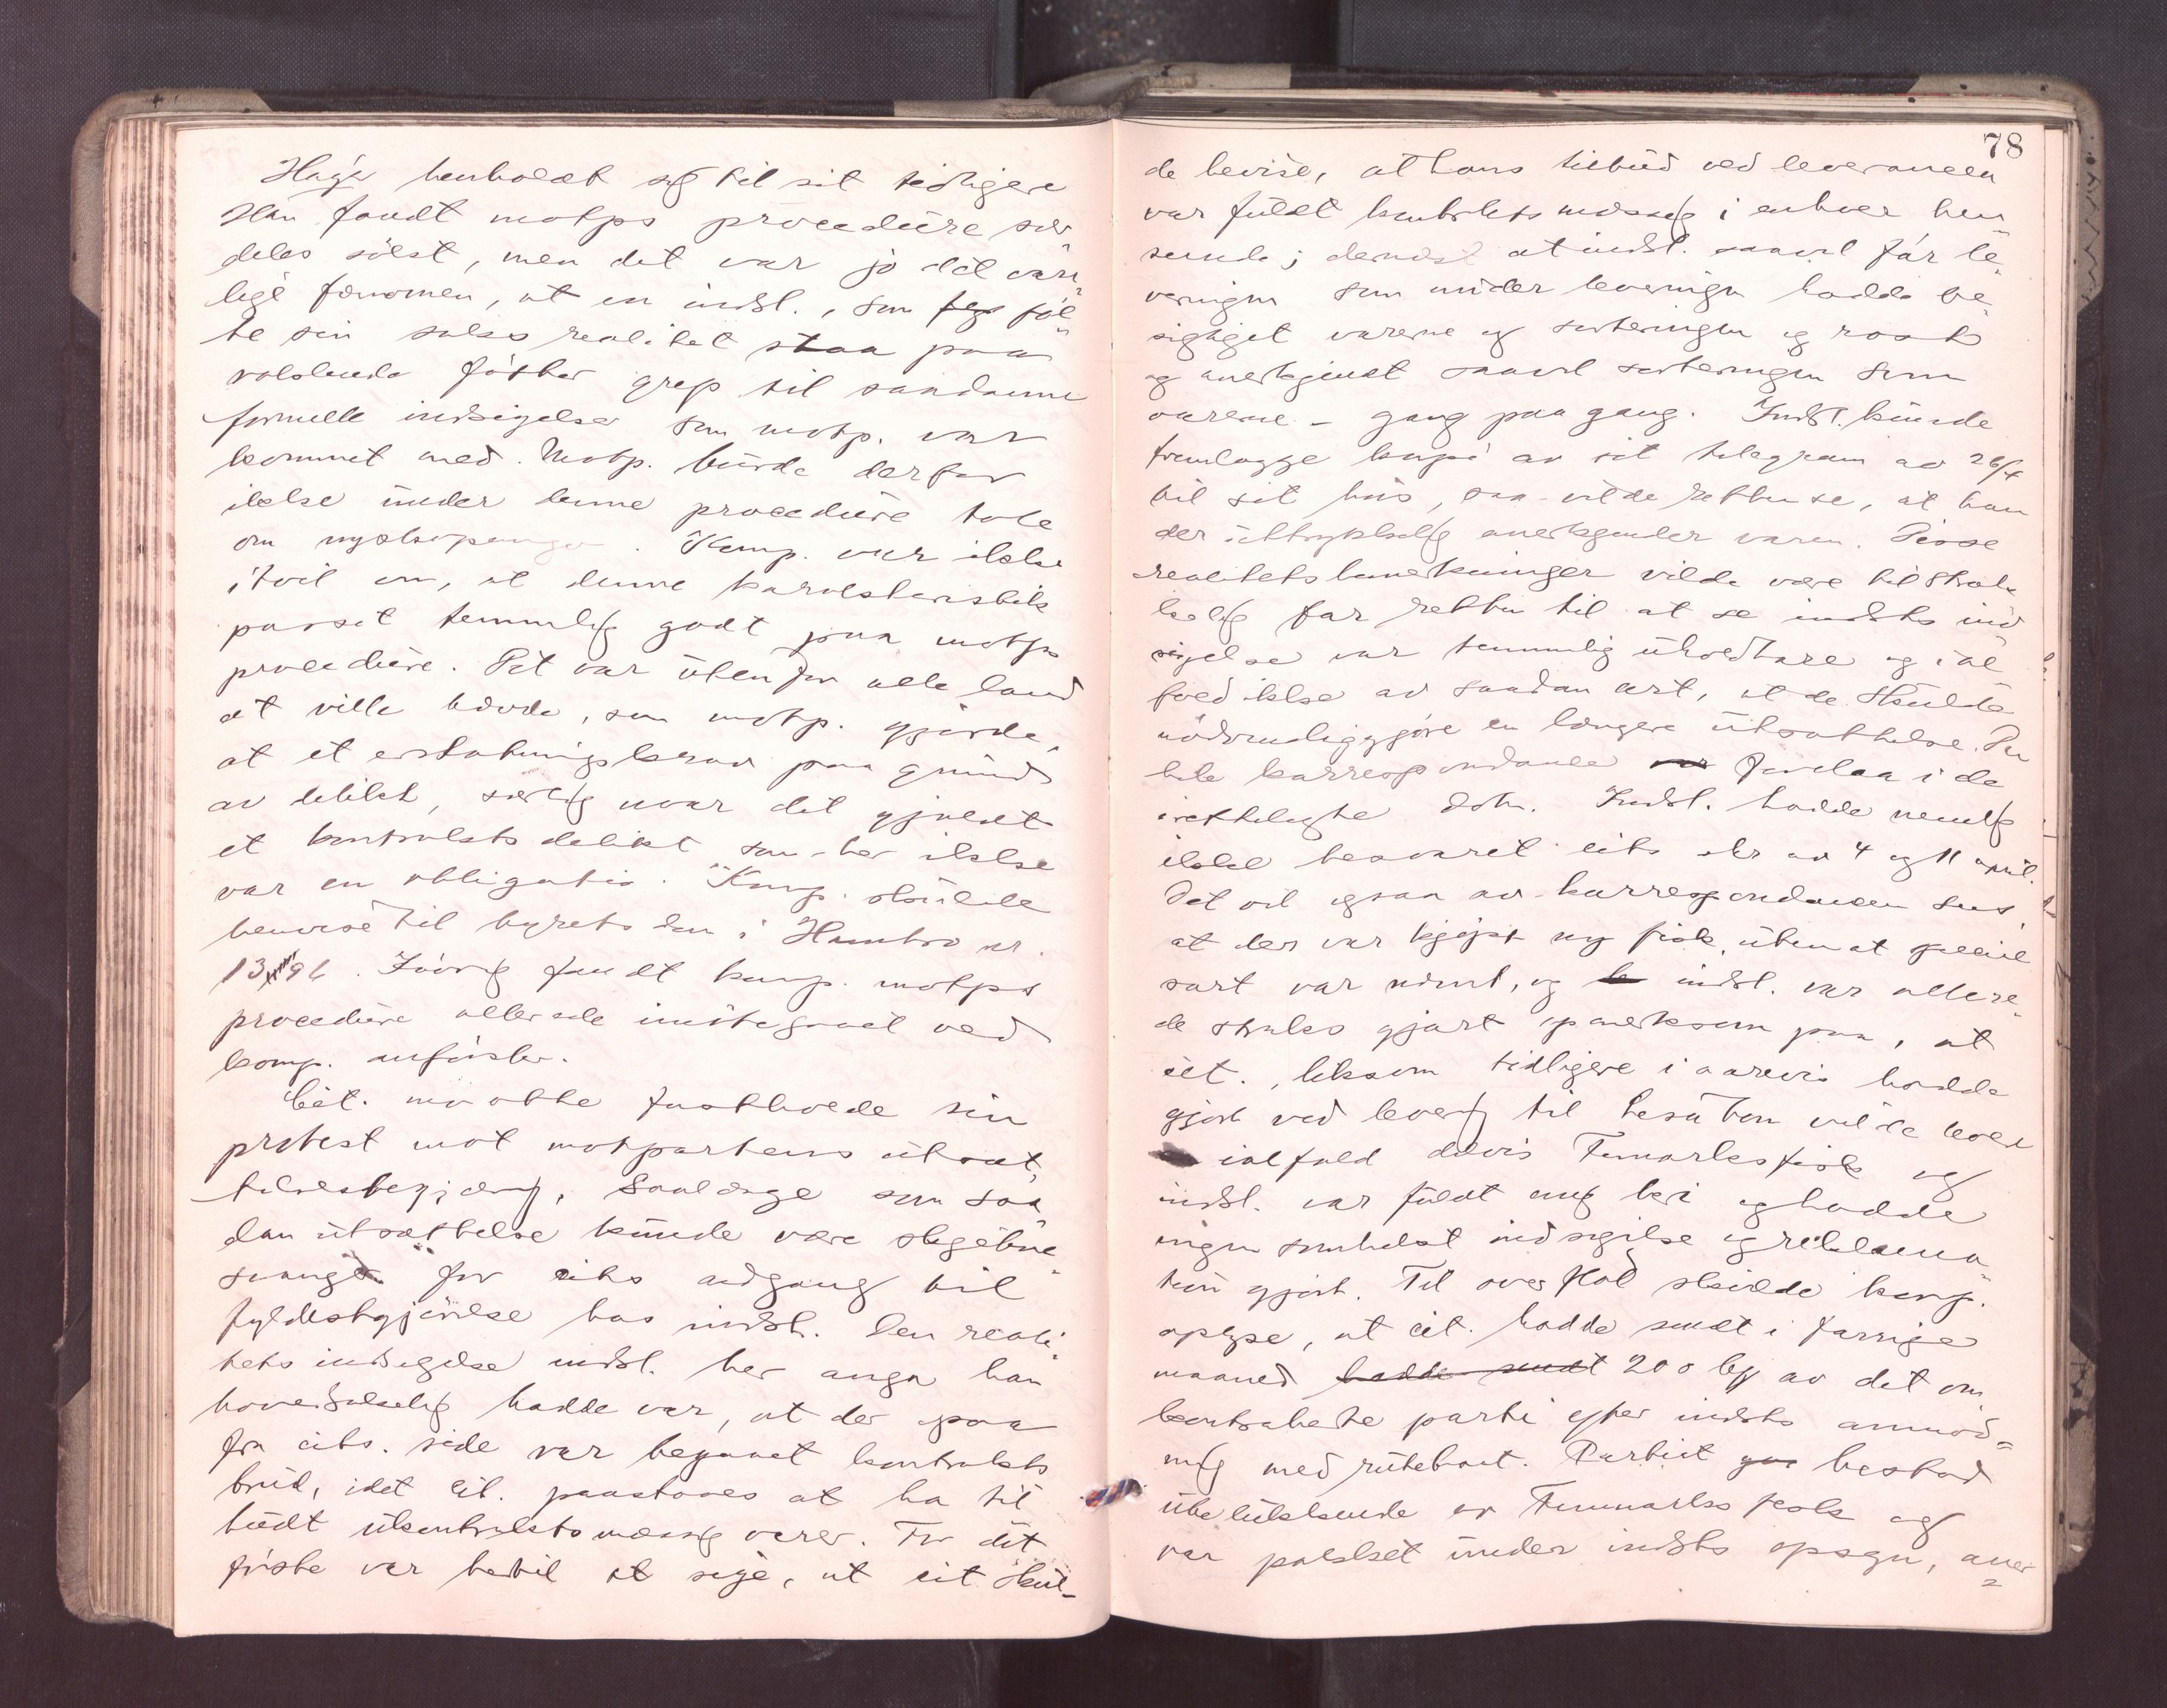 Høgi henholdt sig til sit tidligere
Han fandt motps procedure sær
deles søkt, men det var jo det van
lige fænomen, at en indst., som føl
te sin saks realitet staa paa
vaklende føtter grep til saadanne
formelle indsigelser som motp. var
kommet med. Motp. burde derfor
ikke under denne procedure tale
om nyskapninger. Komp. var ikke
i tvil om, at denne karakteristik
passet temmelig godt paa motps
procedure. Det var utenfor alle land
at ville hævde, som motp. gjorde,
at et erstatningskrav paa grund
av delikt, særlig naar det gjaldt
et kontraktsdelikt som her ikke
var en obligatio. Komp. skulde
henvise til byrets dom i Hambro nr.
13 96. Iøvrig fandt komp. motps
procedure allerede imøtegaaet ved
komp. anførsler.
Cit. maatte fastholde sin
protest mot motpartens utsæt
telsesbegjæring, saalænge som saa
dan utsættelse kunde være skjebne
svanger for cits adgang til
fyldestgjørelse hos indst. Den reali
tets indsigelse indst. her anga han
hovedsakelig hadde var, at der ogsaa
fra cits. side var begaaet kontrakts
brud, idet cit. paastodes at ha til
budt ukontraktsmæssig varer. Til det
første var hertil at sige, at cit skul-
78
de bevise, at hans tilbud ved leverancen
var fuldt kontraktsmæssig i enhver hen
seende; dernæst at indst. saavel før le
veringen som under leveringen hadde be
sigtiget varerne og sorteringen og rost
og anerkjendt saavel sorteringen som
varerne - gang paa gang. Indst. kunde
fremlægge kopi av sit telegram av 26/4
til sit hus, saa vilde retten se, at han
der uttrykkelig anerkjender varen. Disse
realitetsbemerkninger vilde være tilstræk
kelig for retten til at se indsts ind
sigelse var temmelig uholdbare og ial
fald ikke av saadan art, at de skulde
nødvendiggjøre en længere utsættelse. Den
hele korrespondance forelaa i de
irettelagte dok. Indst. hadde nemlig
ikke besvaret cits skr av 4 og 11 april.
Det vil ogsaa av korrespondancen sees,
at der var kjøpt ny fisk, uten at speciel
sort var nævnt, og indst. var allere
de straks gjort opmerksom paa, at
cit., liksom tidligere i aarevis hadde
gjort ved levering til Lissabon vilde levere
ialfald delvis Finmarksfisk og
indst. var fuldt enig heri og hadde
ingen somhelst indsigelse og reklama
tion gjort. Til overflod skulde komp.
oplyse, at cit. hadde sendt i forrige
maaned hadde sendt 200 kg av det om
kontraherte parti efter indsts anmod=
ning med rutebaat. Partiet bestod
utelukkende av Finmarks fisk og
var pakket under indsts opsyn, aner